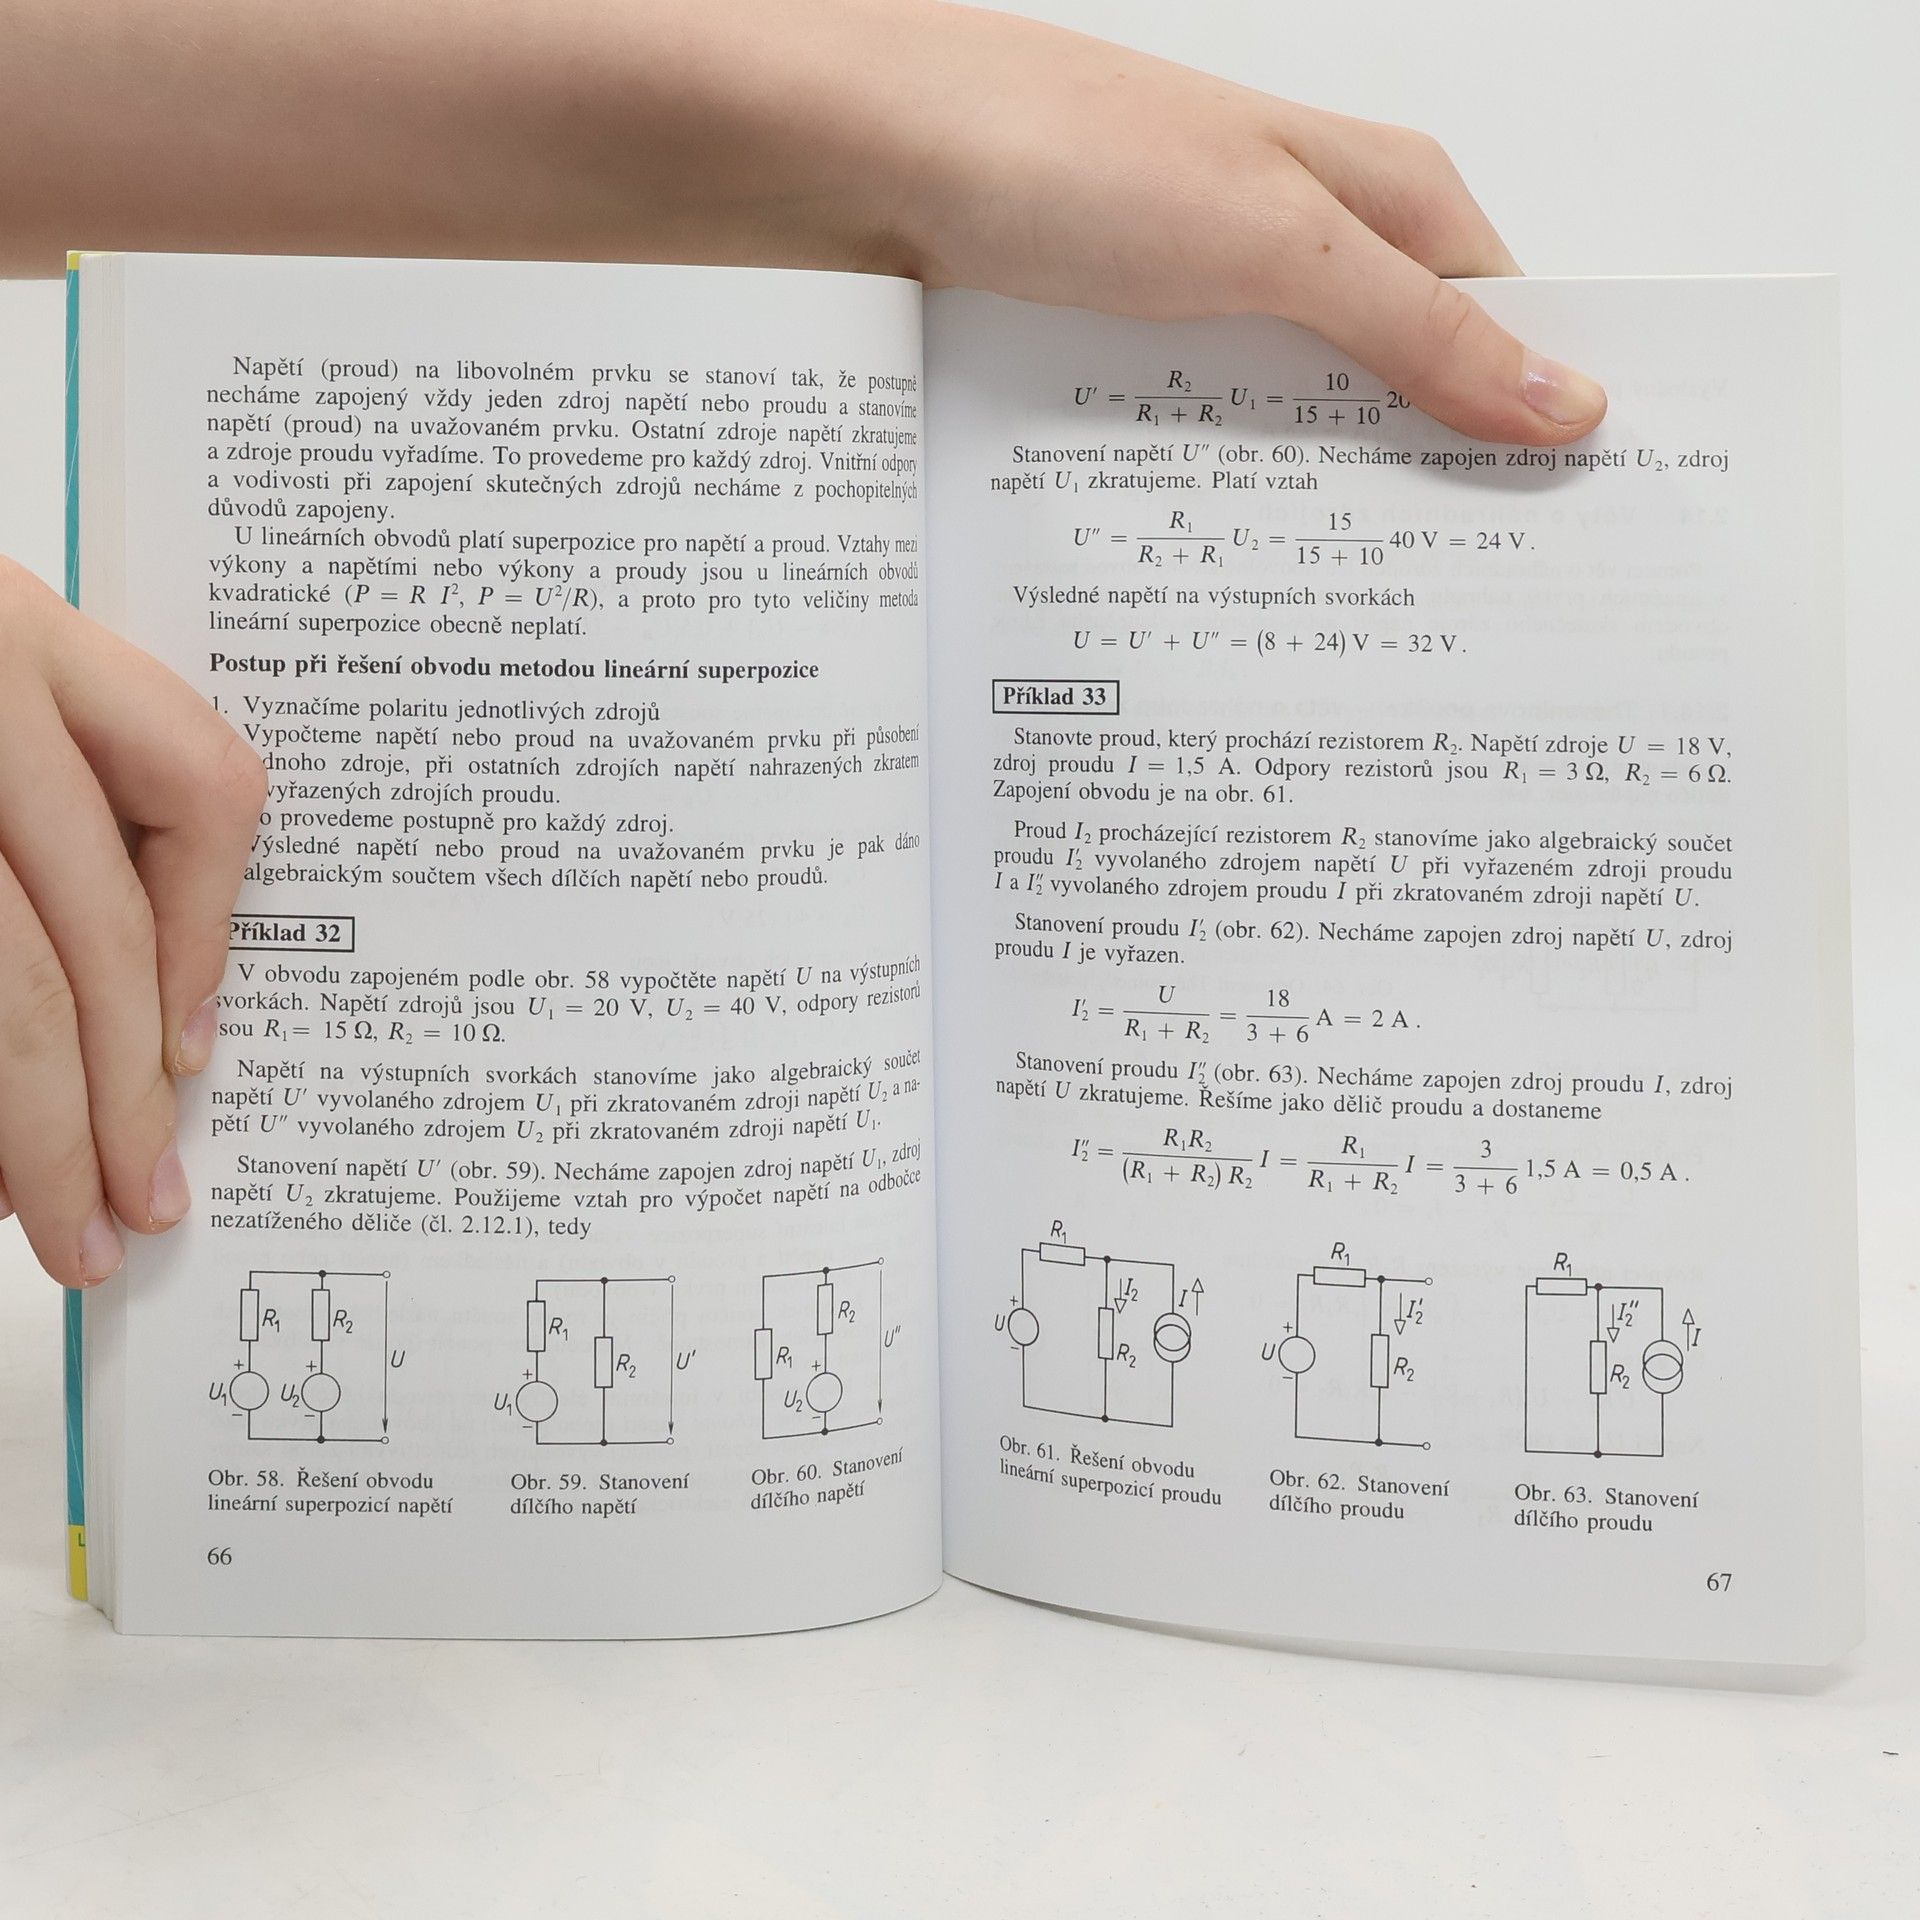 Napětí (proud) na libovolném prvku se stanoví tak, že postupně
necháme zapojený vždy jeden zdroj napětí nebo proudu a stanovíme
napětí (proud) na uvažovaném prvku. Ostatní zdroje napětí zkratujeme
a zdroje proudu vyřadíme. To provedeme pro každý zdroj. Vnitřní odpory
a vodivosti při zapojení skutečných zdrojů necháme z pochopitelných
důvodů zapojeny.
U lineárních obvodů platí superpozice pro napětí a proud. Vztahy mezi
výkony a napětími nebo výkony a proudy jsou u lineárních obvodů
kvadratické (P = R I², P = U²/R), a proto pro tyto veličiny metoda
lineární superpozice obecně neplatí.
Postup při řešení obvodu metodou lineární superpozice
1. Vyznačíme polaritu jednotlivých zdrojů
Vypočteme napětí nebo proud na uvažovaném prvku při působení
dnoho zdroje, při ostatních zdrojích napětí nahrazených zkratem
vyřazených zdrojích proudu.
o provedeme postupně pro každý zdroj.
Výsledné napětí nebo proud na uvažovaném prvku je pak dáno
algebraickým součtem všech dílčích napětí nebo proudů.
Příklad 32
V obvodu zapojeném podle obr. 58 vypočtěte napětí U na výstupních
svorkách. Napětí zdrojů jsou U₁ = 20 V, U₂ = 40 V, odpory rezistorů
sou R₁ = 15 Ω, R₂ = 10 Ω.
Napětí na výstupních svorkách stanovíme jako algebraický součet
napětí U′ vyvolaného zdrojem U₁ při zkratovaném zdroji napětí U₂ a na-
pětí U″ vyvolaného zdrojem U₂ při zkratovaném zdroji napětí U₁.
Stanovení napětí U′ (obr. 59). Necháme zapojen zdroj napětí U₁, zdroj
napětí U₂ zkratujeme. Použijeme vztah pro výpočet napětí na odbočce
nezatíženého děliče (čl. 2.12.1), tedy
R₁ R₂ U + + U₁ U₂ − −
R₁ R₂ U′ + U₁ −
R₁ R₂ U″ + U₂ −
Obr. 58. Řešení obvodu
lineární superpozicí napětí
Obr. 59. Stanovení
dílčího napětí
Obr. 60. Stanovení
dílčího napětí
66
U′ = R₂ / (R₁ + R₂) U₁ = 10 / (15 + 10) 20
Stanovení napětí U″ (obr. 60). Necháme zapojen zdroj napětí U₂, zdroj
napětí U₁ zkratujeme. Platí vztah
U″ = R₁ / (R₂ + R₁) U₂ = 15 / (15 + 10) 40 V = 24 V.
Výsledné napětí na výstupních svorkách
U = U′ + U″ = (8 + 24) V = 32 V.
Příklad 33
Stanovte proud, který prochází rezistorem R₂. Napětí zdroje U = 18 V,
zdroj proudu I = 1,5 A. Odpory rezistorů jsou R₁ = 3 Ω, R₂ = 6 Ω.
Zapojení obvodu je na obr. 61.
Proud I₂ procházející rezistorem R₂ stanovíme jako algebraický součet
proudu I₂′ vyvolaného zdrojem napětí U při vyřazeném zdroji proudu
I a I₂″ vyvolaného zdrojem proudu I při zkratovaném zdroji napětí U.
Stanovení proudu I₂′ (obr. 62). Necháme zapojen zdroj napětí U, zdroj
proudu I je vyřazen.
I₂′ = U / (R₁ + R₂) = 18 / (3 + 6) A = 2 A.
Stanovení proudu I₂″ (obr. 63). Necháme zapojen zdroj proudu I, zdroj
napětí U zkratujeme. Řešíme jako dělič proudu a dostaneme
I₂″ = R₁R₂ / ((R₁ + R₂) R₂) I = R₁ / (R₁ + R₂) I = 3 / (3 + 6) 1,5 A = 0,5 A.
R₁ I₂ I + U − R₂
R₁ I₂′ + U − R₂
R₁ I₂″ I R₂
Obr. 61. Řešení obvodu
lineární superpozicí proudu
Obr. 62. Stanovení
dílčího proudu
Obr. 63. Stanovení
dílčího proudu
67